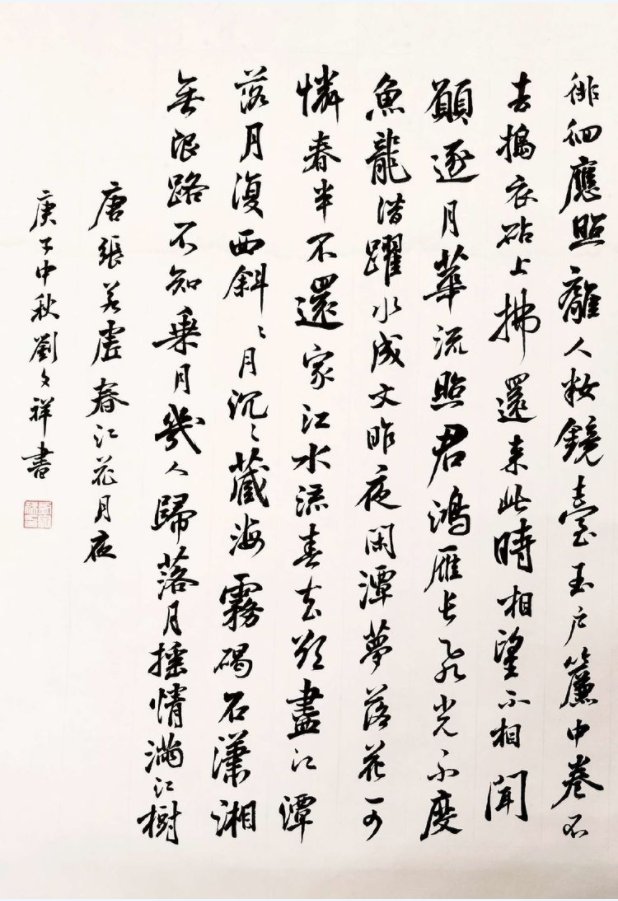 徘徊應照離人粧鏡臺玉戶簾中卷不
去搗衣砧上拂還來此時相望不相聞
願逐月華流照君鴻雁長飛光不度
魚龍潛躍水成文昨夜閑潭夢落花可
憐春半不還家江水流春去欲盡江潭
落月復西斜〻月沉〻藏海霧碣石瀟湘
無限路不知乘月幾人歸落月搖情滿江樹
唐張若虛春江花月夜
庚子中秋劉文祥書